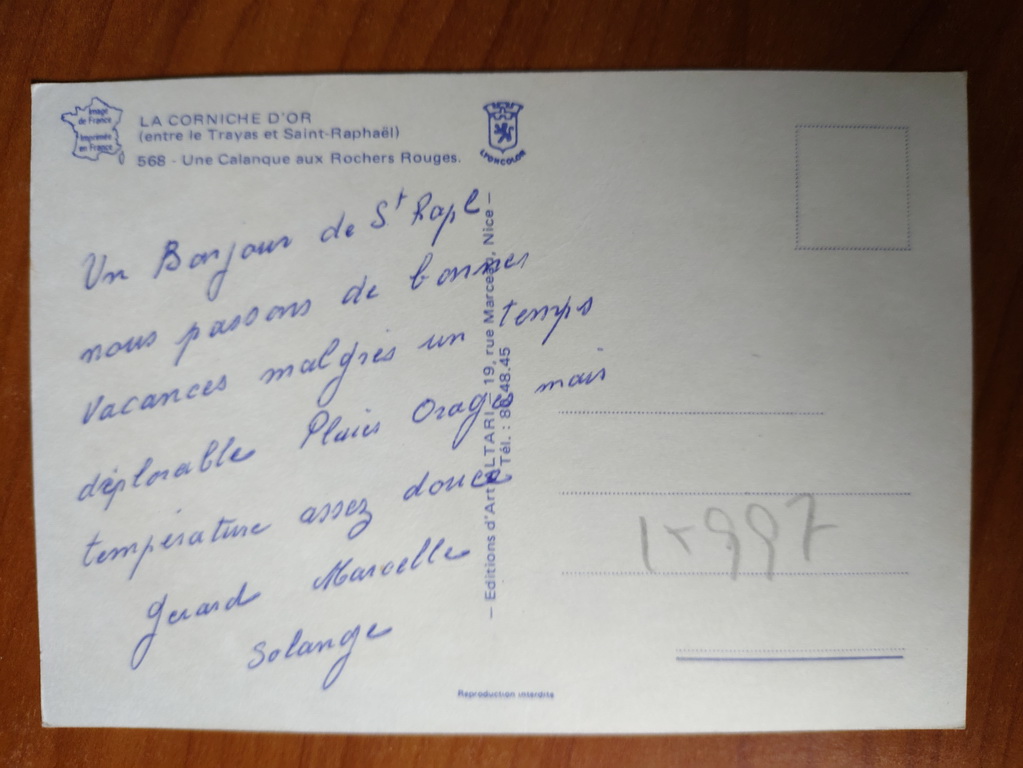 Image
de France
Imprimée
en France
LA CORNICHE D'OR
(entre le Trayas et Saint-Raphaël)
568 - Une Calanque aux Rochers Rouges.
LYONCOLOR
Un Bonjour de St Rapl
nous passons de bonnes
vacances malgrés un temps
déplorable Pluies Orage mais
température assez douce
Gerard Marcelle
Solange
— Editions d'Art ALTARI — 19, rue Marceau, Nice —
Tél. : 80.48.45
15997
Reproduction interdite